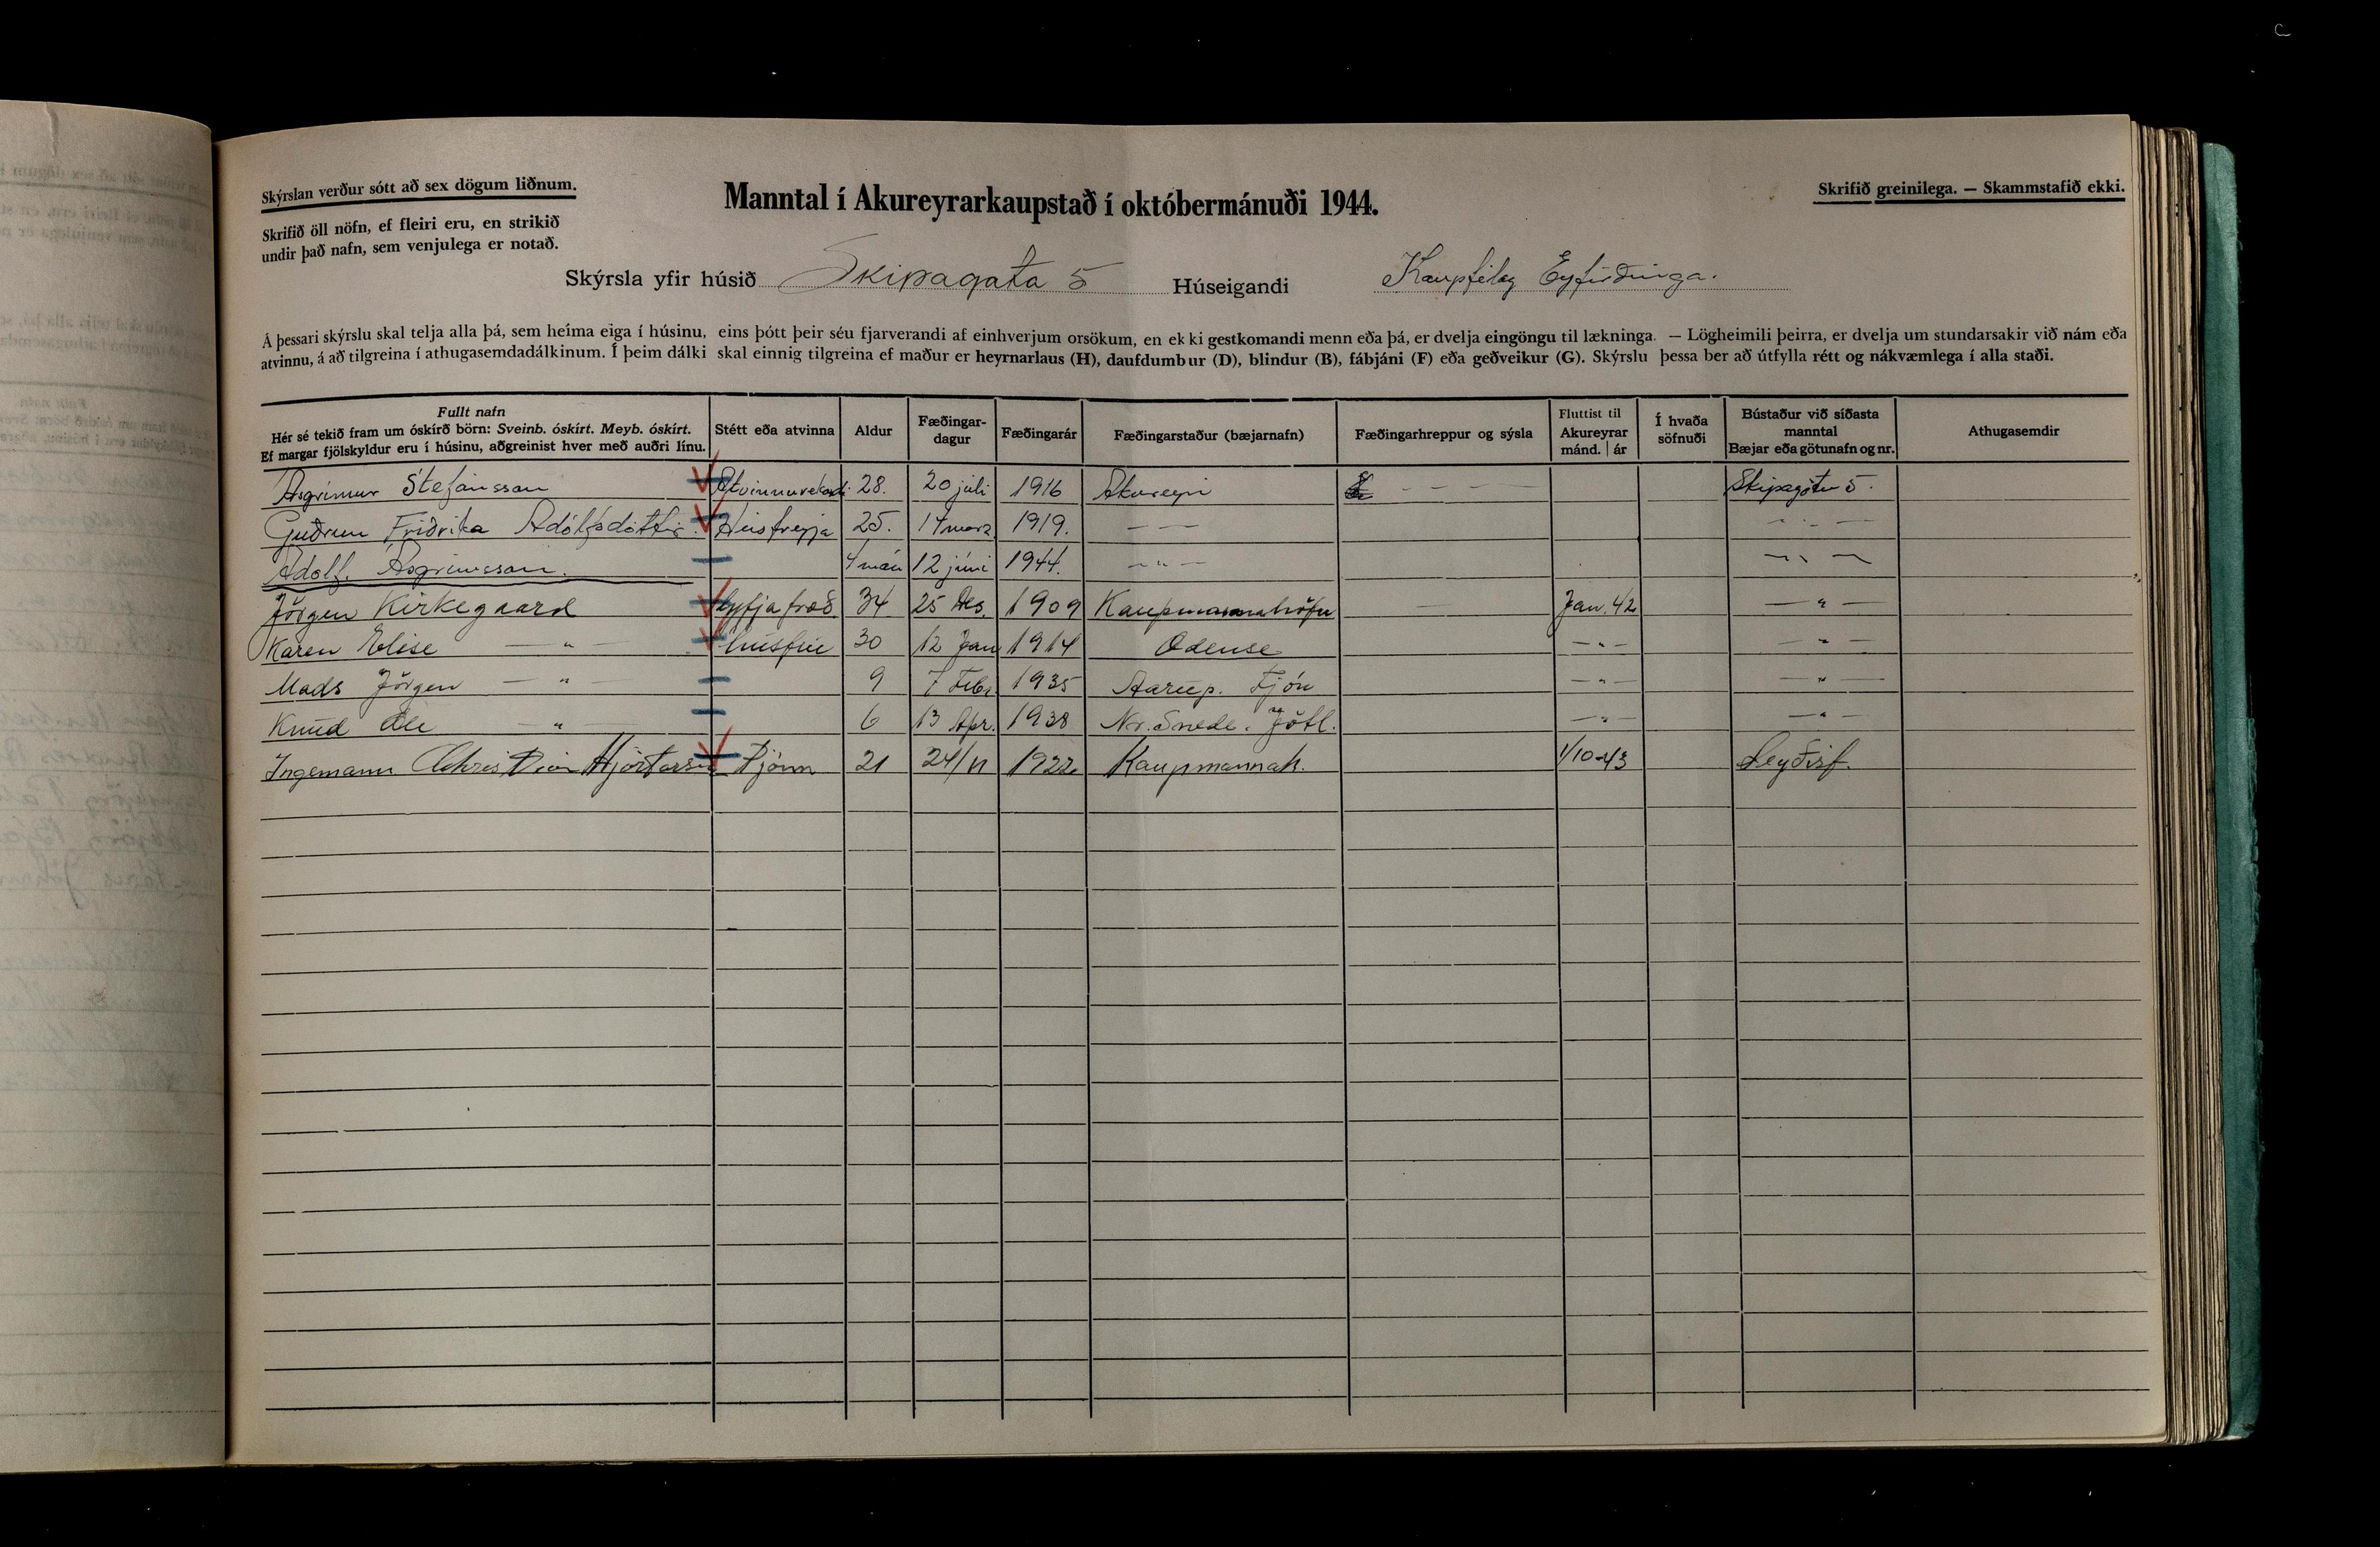 Skýrslan verður sótt að sex dögum liðnum.
Skrifið öll nöfn, ef fleiri eru, en strikið
undir það nafn, sem venjulega er notað.
Manntal í Akureyrarkaupstað í októbermánuði 1944.
Skrifið greinilega. — Skammstafið ekki.
Skýrsla yfir húsið Skipagata 5 Húseigandi Kaupfélag Eyfirðinga.
Á þessari skýrslu skal telja alla þá, sem heima eiga í húsinu, eins þótt þeir séu fjarverandi af einhverjum orsökum, en ekki gestkomandi menn eða þá, er dvelja eingöngu til lækninga. — Lögheimili þeirra, er dvelja um stundarsakir við nám eða
atvinnu, á að tilgreina í athugasemdadálkinum. Í þeim dálki skal einnig tilgreina ef maður er heyrnarlaus (H), daufdumbur (D), blindur (B), fábjáni (F) eða geðveikur (G). Skýrslu þessa ber að útfylla rétt og nákvæmlega í alla staði.
Fullt nafn
Hér sé tekið fram um óskírð börn: Sveinb. óskírt. Meyb. óskírt.
Ef margar fjölskyldur eru í húsinu, aðgreinist hver með auðri línu.
Stétt eða atvinna
Aldur
Fæðingar-
dagur
Fæðingarár
Fæðingarstaður (bæjarnafn)
Fæðingarhreppur og sýsla
Fluttist til
Akureyrar
mánd. | ár
Í hvaða
söfnuði
Bústaður við síðasta
manntal
Bæjar eða götunafn og nr.
Athugasemdir
Ásgrímur Stefánsson Atvinnurekandi 28. 20 júlí 1916 Akureyri — — — — Skipagötu 5.
Guðrun Friðrika Adólfsdóttir. Húsfreyja 25. 14 marz 1919. — — — " —
Adolf. Ásgrímsson. 4 mán 12 júni 1944. — " — — " —
Jörgen Kirkegaard 34 25 Des. 1909 Kaupmannahöfn — Jan. 42 — " —
Karen Elise — " — húsfrú 30 12 Jan 1914 Odense — " — — " —
Mads Jörgen — " — 9 7 Febr 1935 Aarup. Fjón — " — — " —
Knud Ole — " — 6 13 Apr. 1938 Nr. Snede. Jótl. — " — — " —
Ingemann Christian Hjörtarson Þjónn 21 24/11 1922 Kaupmannah. 1/10-43 Seyðisf.